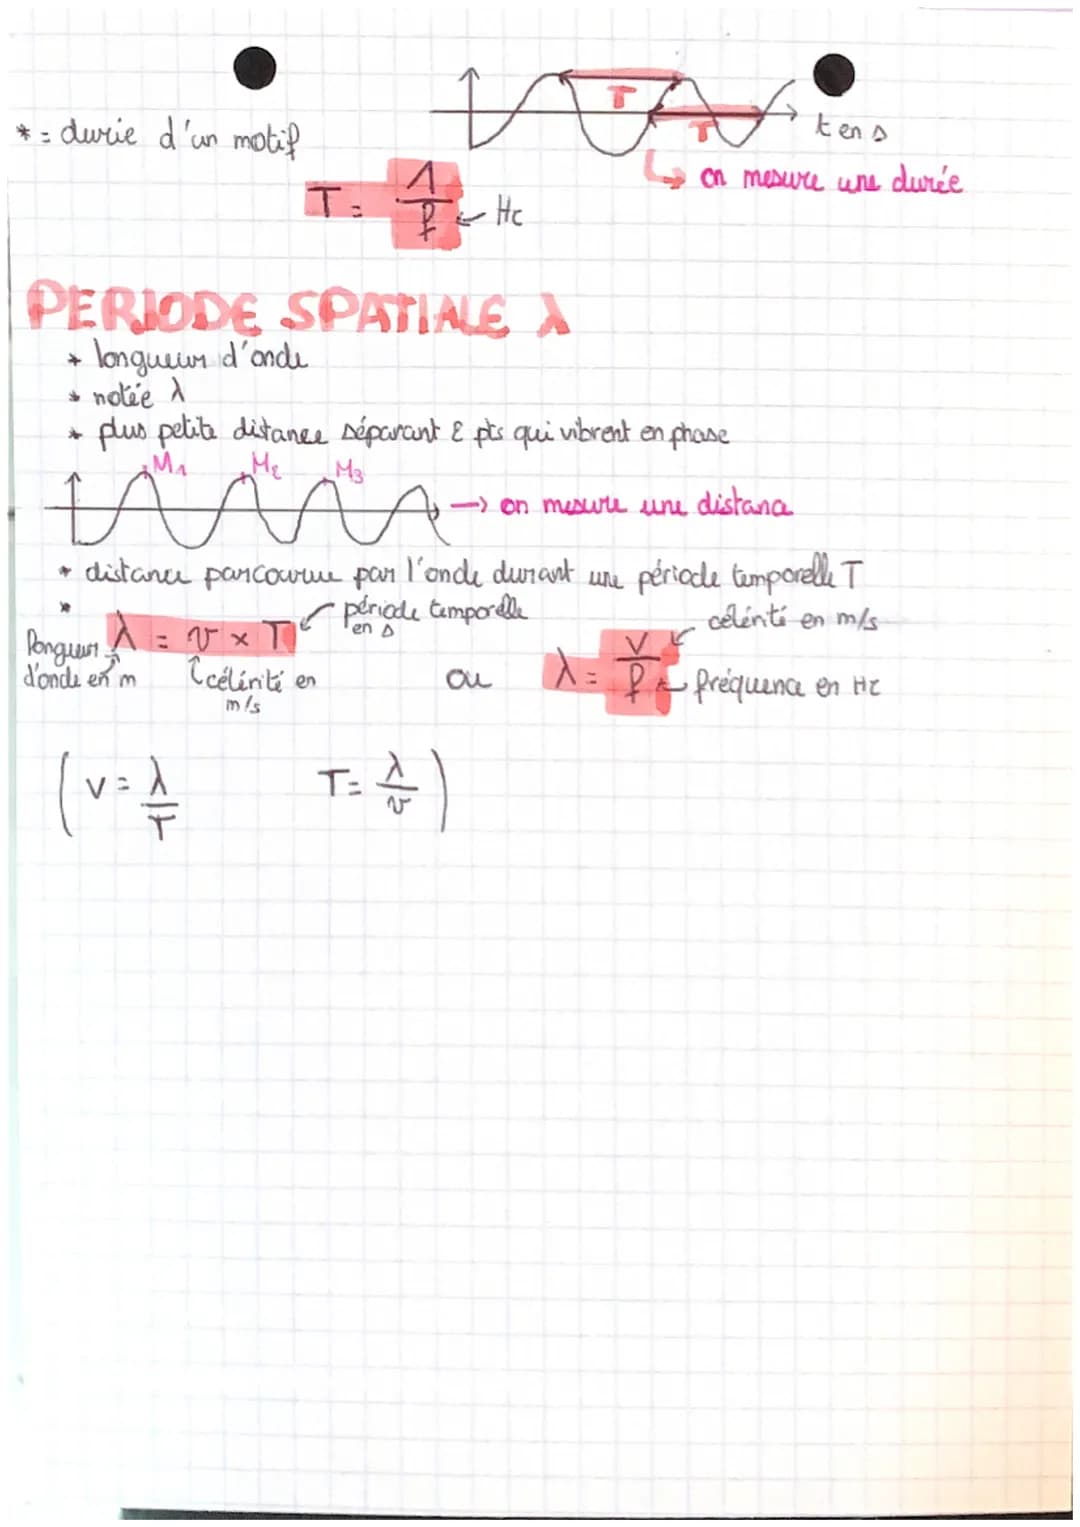 T
T
t en s
* = durée d'un motif
↳ on mesure une durée
T = 1/f ← Hz
PERIODE SPATIALE λ
* longueur d'onde
* notée λ
* plus petite distance séparant 2 pts qui vibrent en phase
M1 M2 M3
→ on mesure une distance
* distance parcourue par l'onde durant une période temporelle T
* λ = v × T
période temporelle en s
longueur d'onde en m
célérité en m/s
ou
λ = v/f
célérité en m/s
fréquence en Hz
( v = λ/T T = λ/v )